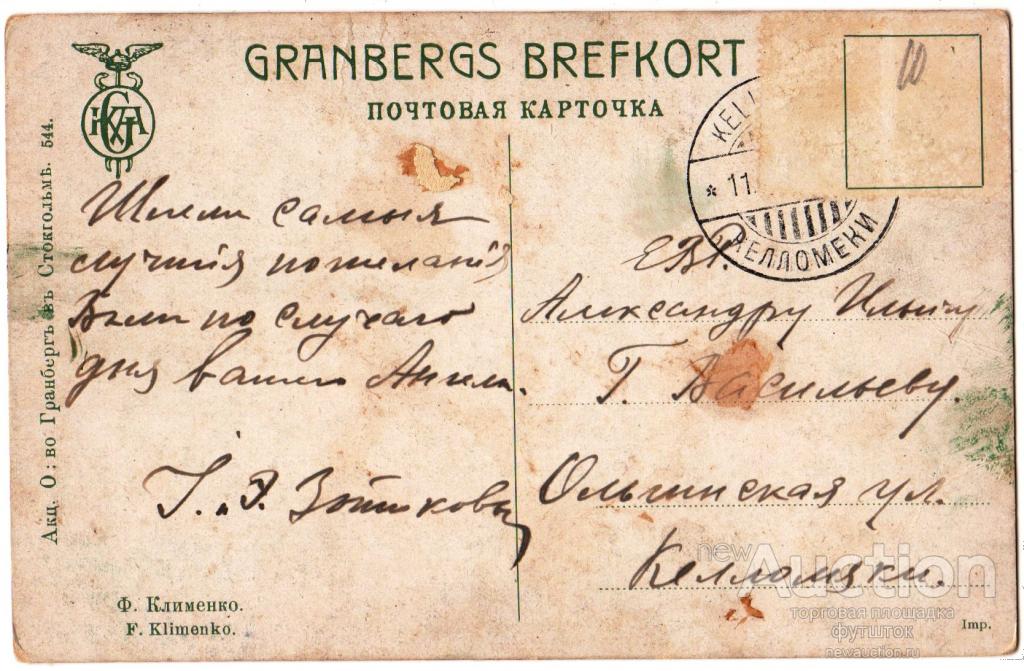 GRANBERGS BREFKORT
ПОЧТОВАЯ КАРТОЧКА
Акц. О; во Гранбергъ въ Стокгольмѣ. 544.
10
KELL
* 11.
КЕЛЛОМЕКИ
Шлем самыя
лучшія пожеланія
Вам по случаю
дня вашего Ангела.
Е.В.Р.
Александру Ильичу
Г. Васильеву.
Ольгинская ул.
Келломяки.
Ф. Клименко.
F. Klimenko.
Imp.
newAuction
торговая площадка
футшток
newauction.ru